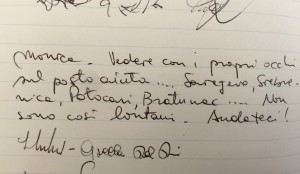 Monica. Vedere con i propri occhi
sul posto aiuta .... Sarajevo, Srebre-
nica, Potocari, Bratunac .... Non
sono così lontani. Andateci!